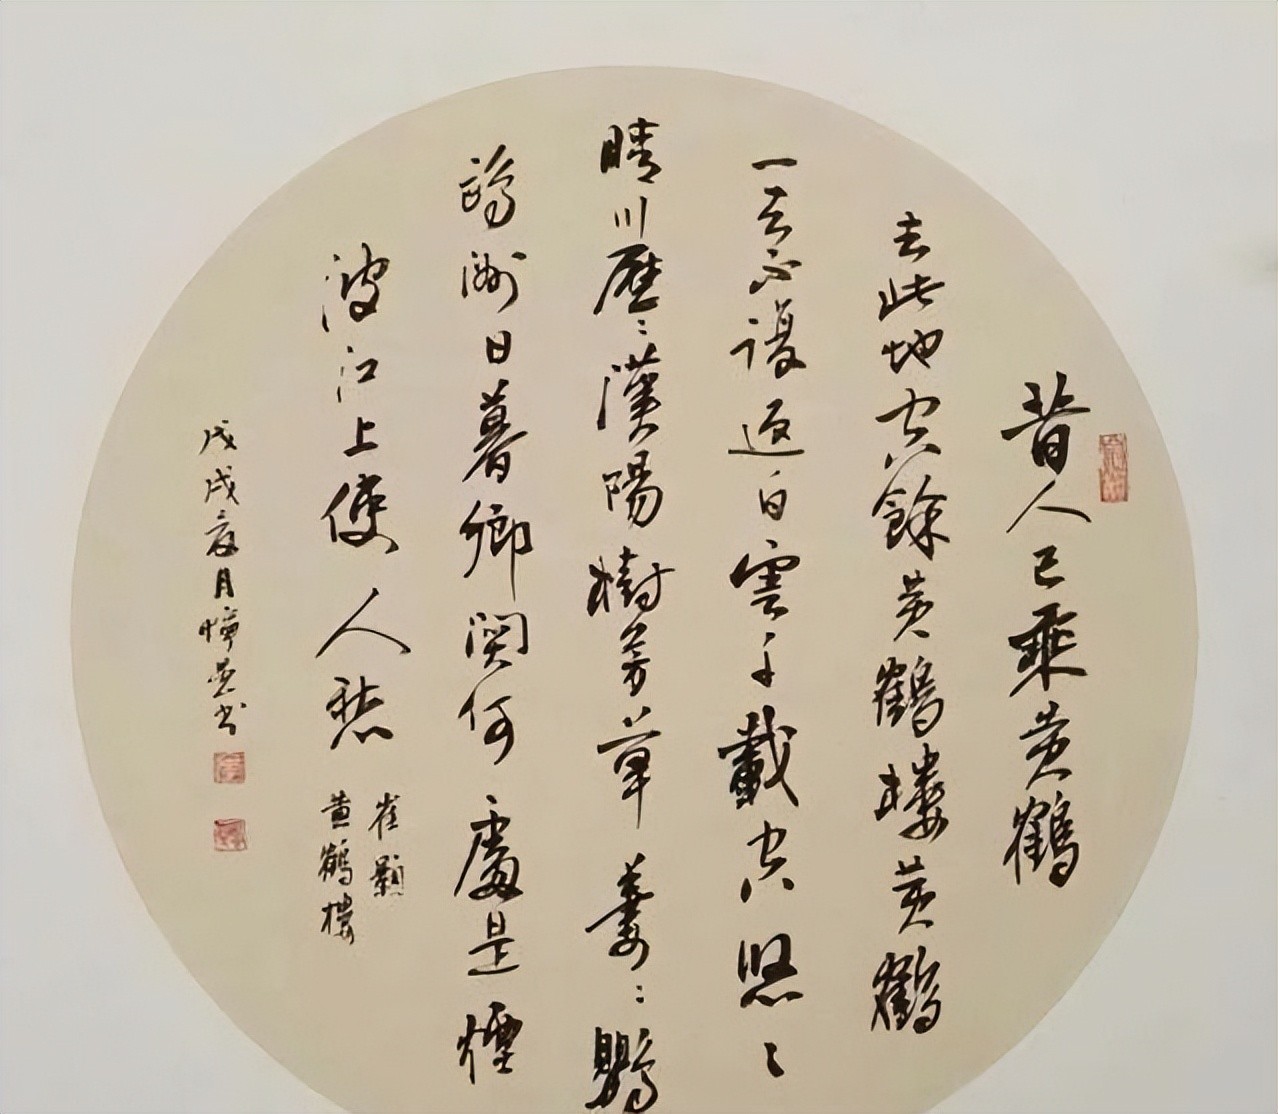 昔人已乘黄鶴
去此地空餘黄鶴樓黄鶴
一去不復返白雲千載空悠々
晴川歷々漢陽樹芳草萋々鸚
鵡洲日暮鄉関何處是煙
波江上使人愁
崔顥
黄鶴樓
戊戌夏月书